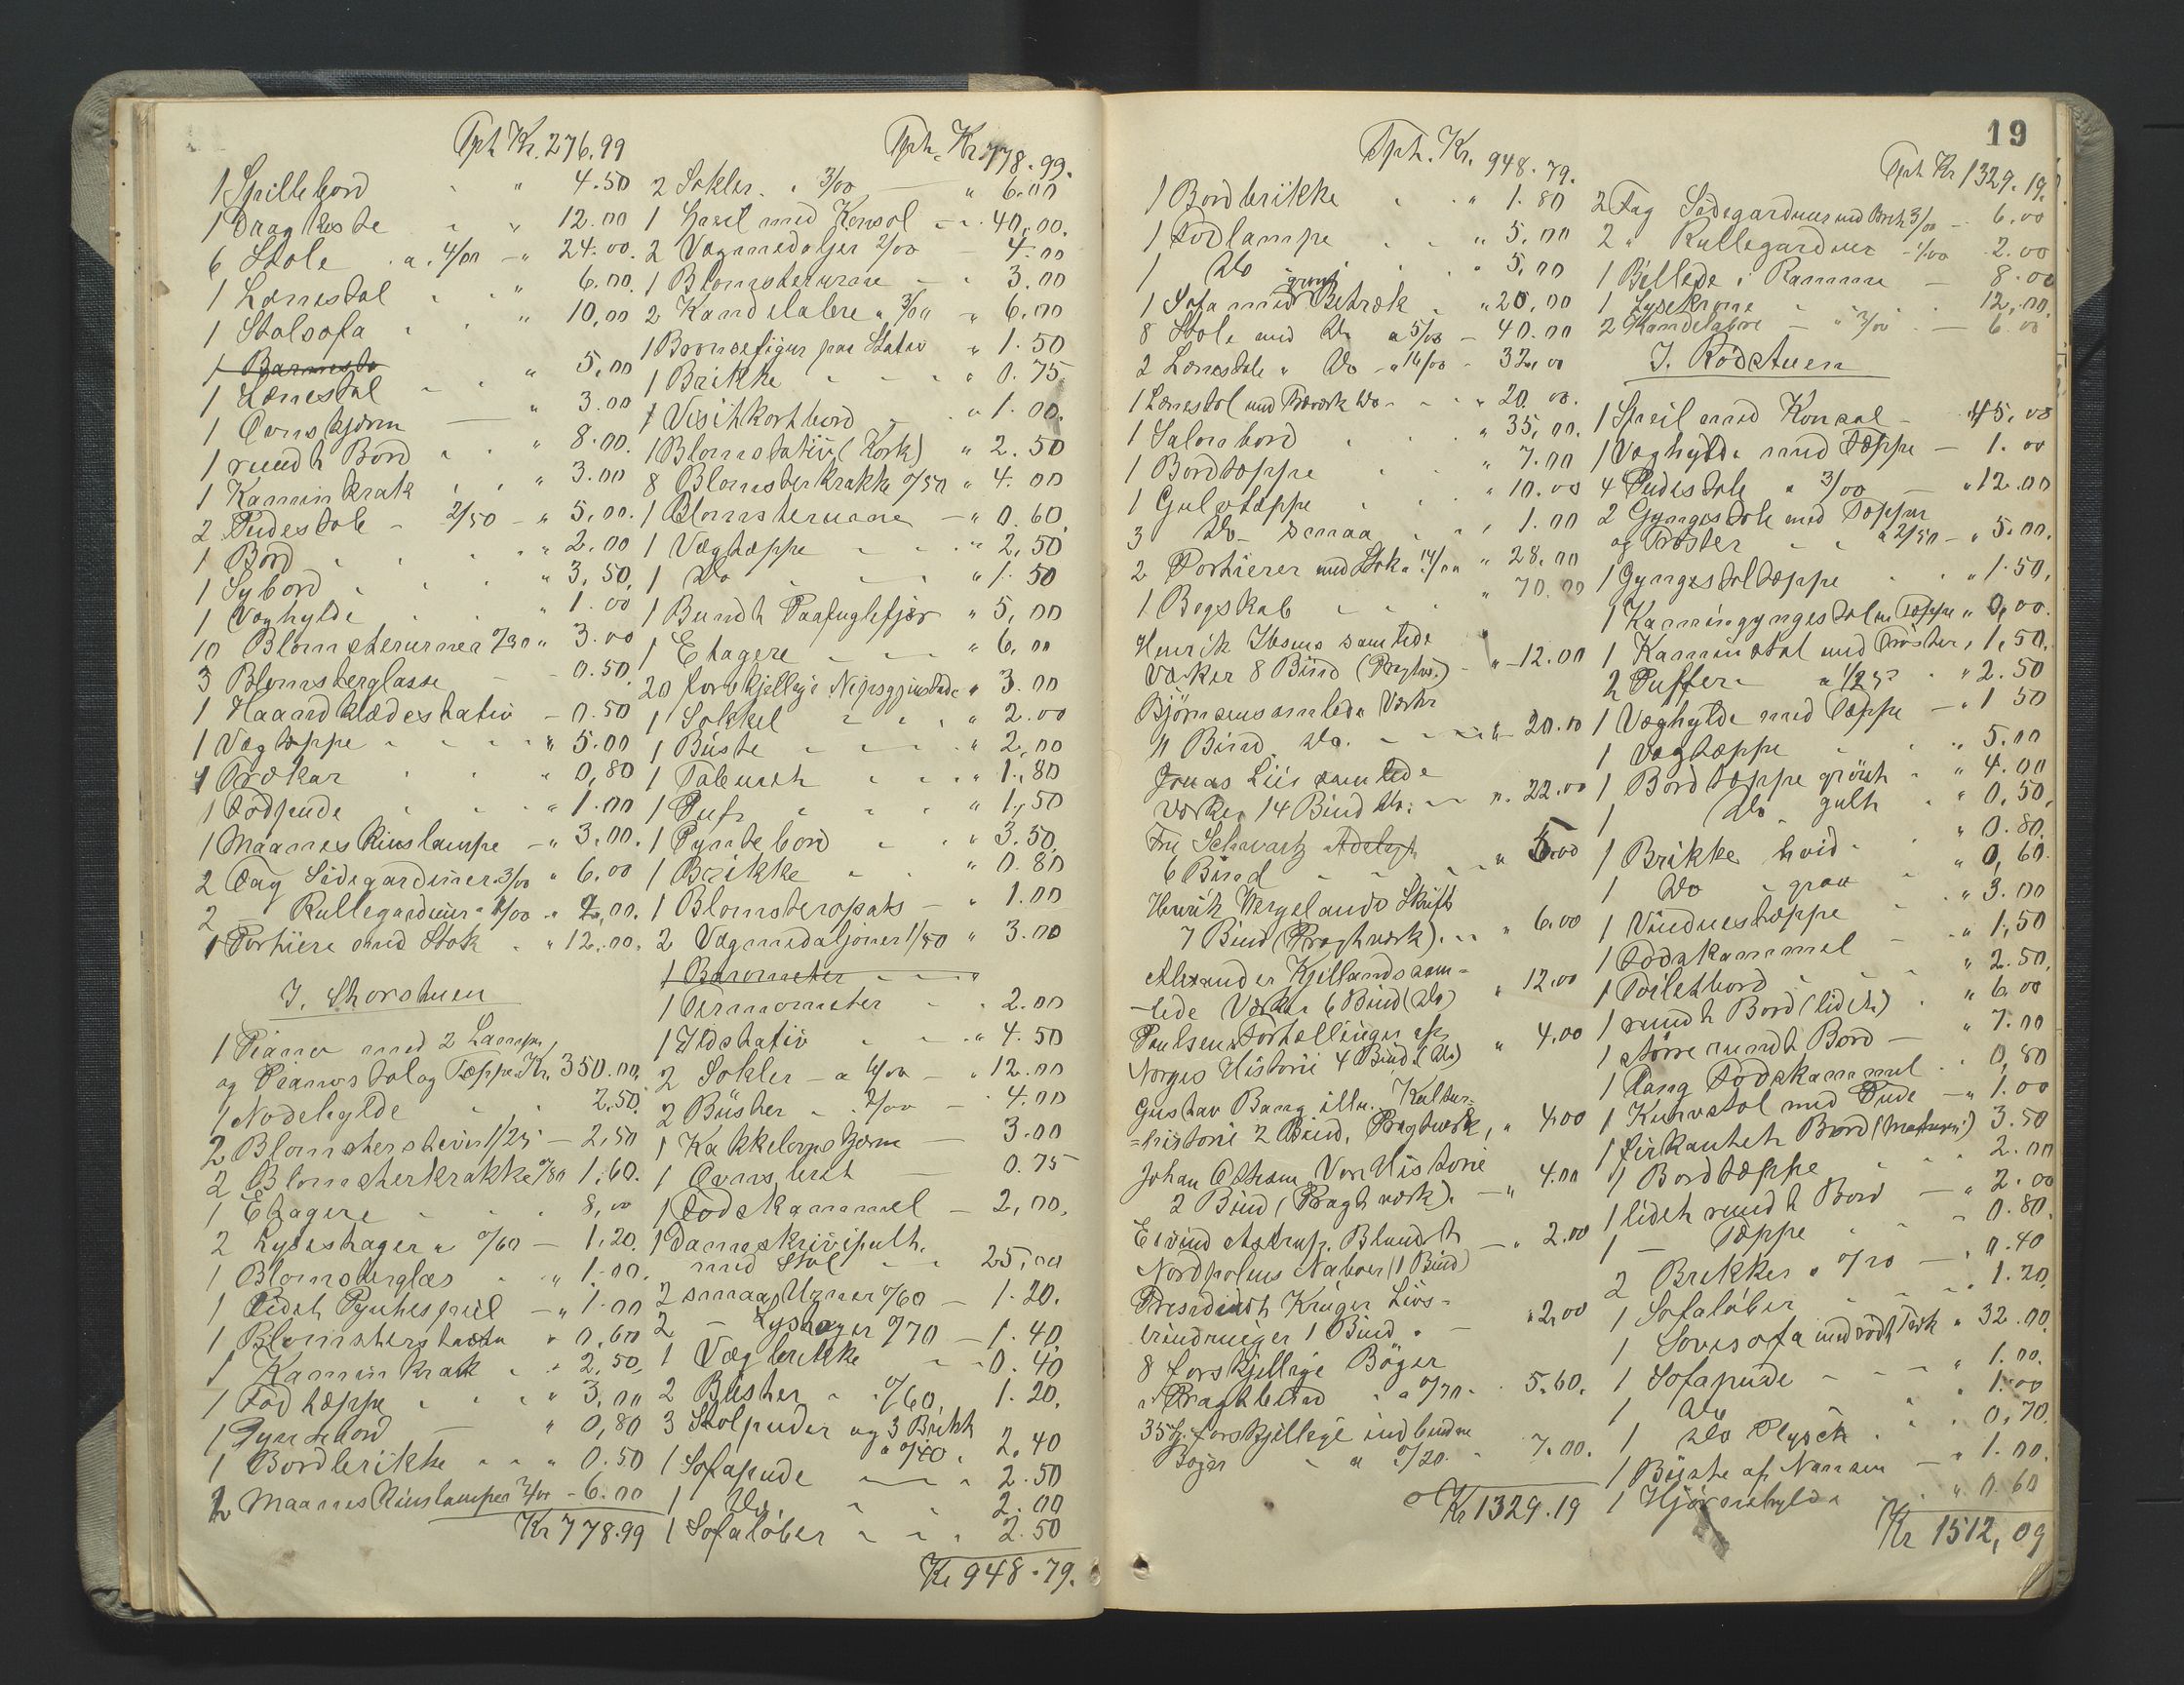 Tph Kr. 276.99
1 Spillebord " 4.50
1 Dragkiste " 12.00
6 Stole a 4/00 - " 24.00.
1 Lænestol " 6.00
1 Stolsofa " 10,00
1 Lænestol " 5,00
1 Ovnskjerm " 3.00
1 rundt Bord " 8.00.
1 Kaminkrak " 3.00
2 Pudestole - 2/50 - " 5,00.
1 Bord " 2.00
1 Sybord " 3,50,
1 Væghylde " 1.00
10 Blomsterurner 0/30 " 3.00
3 Blomsterglasse - 0.50
1 Haandklædestativ - 0.50
1 Vægtæppe " 5.00
1 Trækar " 0,80
1 Fodpude " 1.00
1 Maaneskinslampe - " 3,00.
2 Fag Sidegardiner 3/00 " 6,00
2 - Rullegardiner a 1/00 " 2,00.
1 Portiere med Stok " 12.00.
I. Storstuen
1 Piano med 2 Lamper
og Pianostol og Tæppe Kr. 350.00,
1 Nodehylde 2,50.
2 Blomsterstativ 1/25 - 2,50
2 Blomsterkrakke 0/80 1,60.
1 Etagere 8,00
2 Lysestager a 0/60 - 1,20.
1 Blomsterglas " 1.00.
1 lidet Pyntespeil - " 1.00
1 Blomsterstativ " 0,60
1 Kaminkrak " 2,50,
1 Fodtæppe " 3,00
1 Pyntebord " 0,80
1 Bordbrikke " 0.50
2 Maaneskinslamper 3/00 - 6.00
Kr 778.99
Tph. Kr 778.99.
2 Sokler a 3/00 " 6.00
1 Speil med Konsol - 40,00.
2 Vægmedaljer 2/00 4.00
1 Blomsterurne 3.00
2 Kandelabre a 3/00 " 6,00
1 Bronsefigur paa Stativ " 1.50
1 Brikke " 0.75
1 Visitkortbord " 1.00.
1 Blomstativ (Kork) " 2.50
8 Blomsterkrakke 0/50 " 4.00
1 Blomstervase - " 0.60
1 Vægtæppe " 2,50
1 Do " 1.50
1 Bundt Paafuglefjær " 5,00
1 Etagere " 6,00
20 forskjellige Nipsgjenstande " 3.00
1 Sokkel " 2.00
1 Büste " 2,00
1 Taburet " 1,80
1 Puf " 1,50
1 Pyntebord " 3.50,
1 Brikke " 0.80
1 Blomsteropsats - " 1.00
2 Vægmedaljoner 1/50 " 3.00
1 Barometer "
1 Termometer " 2.00
1 Ildstativ " 4.50
2 Sokler - a 6/00 - " 12.00
2 Büster - 2/00 - 4.00
1 Kakkelovnsskjerm - 3.00
1 Ovnskost - 0.75
1 Fodskammel - 2,00,
1 Dameskrivepult.
med Stol - 25,00
2 smaa Urner 0/60 - 1.20.
2 - Lysstager 0/70 - 1.40,
1 Vægbrikke - 0.40
2 Büster " 0/60, 1.20,
3 Stolpuder og 3 Brikk
a 0/40 2.40
1 Sofapude 2.50
1 Do. 2.00
1 Sofaløber 2.50
Kr 948.79.
Tph. Kr. 948.79.
1 Bordbrikke " 1.80
1 Fodlampe " 5,00
1 Do " 5,00
1 Sofa med grønt Betræk " 20,00
8 Stole med Do a 5/00 - 40.00
2 Lænestole " Do - a 16/00 - 32,00
1 Lænestol med Træværk Do - " 20.00.
1 Salonbord " 35,00.
1 Bordtæppe " 7.00
1 Gulvtæppe " 10.00
3 Do - smaa " 1.00
2 Portierer med Stok a 14/00 " 28,00
1 Bogskab " 70.00
Henrik Ibsens samlede
Værker 8 Bind (Pragtv.) - " 12.00
Bjørnsens samlede Værker
11 Bind Do. " 20.00
Jonas Liis samlede
Værker 14 Bind Do. " 22.00
Fru Schwartz
6 Bind " 5.00
Henrik Wergelands Skrift
7 Bind (Pragtværk). " 6.00
Alexander Kjellands sam=
-lede Værker 6 Bind (Do) " 12.00
Paulsens Fortellinger af
Norges Historie 4 Bind (Do) " 4,00
Gustav Bang illu. Kultur=
=historie 2 Bind, Pragtværk, " 4.00
Johan Ottosen, Vor Historie
2 Bind (Pragtværk). - " 4.00
Eivind Astrup, Blandt
Nordpolens Naboer (1 Bind) - " 2.00
Presedent Krüger Livs-
erindringer 1 Bind. - " 2,00
8 forskjellige Bøger
i Pragtbind a 0/70 5,60,
35 St. forskjellige indbundne
Bøger a 0/20. 7.00.
Kr 1329.19
19
Tph Kr 1329.19.
2 Fag Sidegardiner med Bret 3/00 - 6.00
2 " Rullegardiner - 1/00 2.00
1 Billede i Ramme - 8.00
1 Lysekrone - 12,00,
2 Kandelabre - a 3/00 - 6.00
I. Rødstuen
1 Speil med Konsol - 45,00
1 Væghylde med Tæppe - 1.00
4 Pudestole a 3/00 - " 12.00
2 Gyngestole med Tæpper
og Trøster a 2/50 - " 5.00,
1 Gyngestoltæppe " 1.50,
1 Kamingyngestol m. Tæppe " 2,00.
1 Kaminstol med Trøster, 1,50,
2 Puffer a 1/25 " 2.50
1 Væghylde med Tæppe - " 1 50
1 Vægtæppe " 5.00
1 Bordtæppe grönt " 4.00
1 Do. gult " 0,50,
1 Brikke hvid " 0.80,
1 Do graa " 0,60
1 Vindustæppe " 3.00
1 Fodskammel - " 1,50
1 Toiletbord " 2.50,
1 rundt Bord (lidet) " 6.00
1 større rundt Bord - " 7.00
1 lang Fodskammel " 0,80
1 Kurvstol med Pude - " 1.00
1 firkantet Bord 3.50
1 Bordtæppe 2.00
1 lidet rundt Bord - " 2.00
1 - Tæppe - 0.80,
2 Brikker a 0/20 - " 0.40
1 Sofaløber 1.20,
1 Sovesofa med rødt Træk " 32.00,
1 Sofapude " 1.00.
1 Do " 1.00
1 Do Plysch " 0,70.
1 Büste af Nansen - " 1.00.
1 Hjørnehylde " 0.60
Kr 1512,09